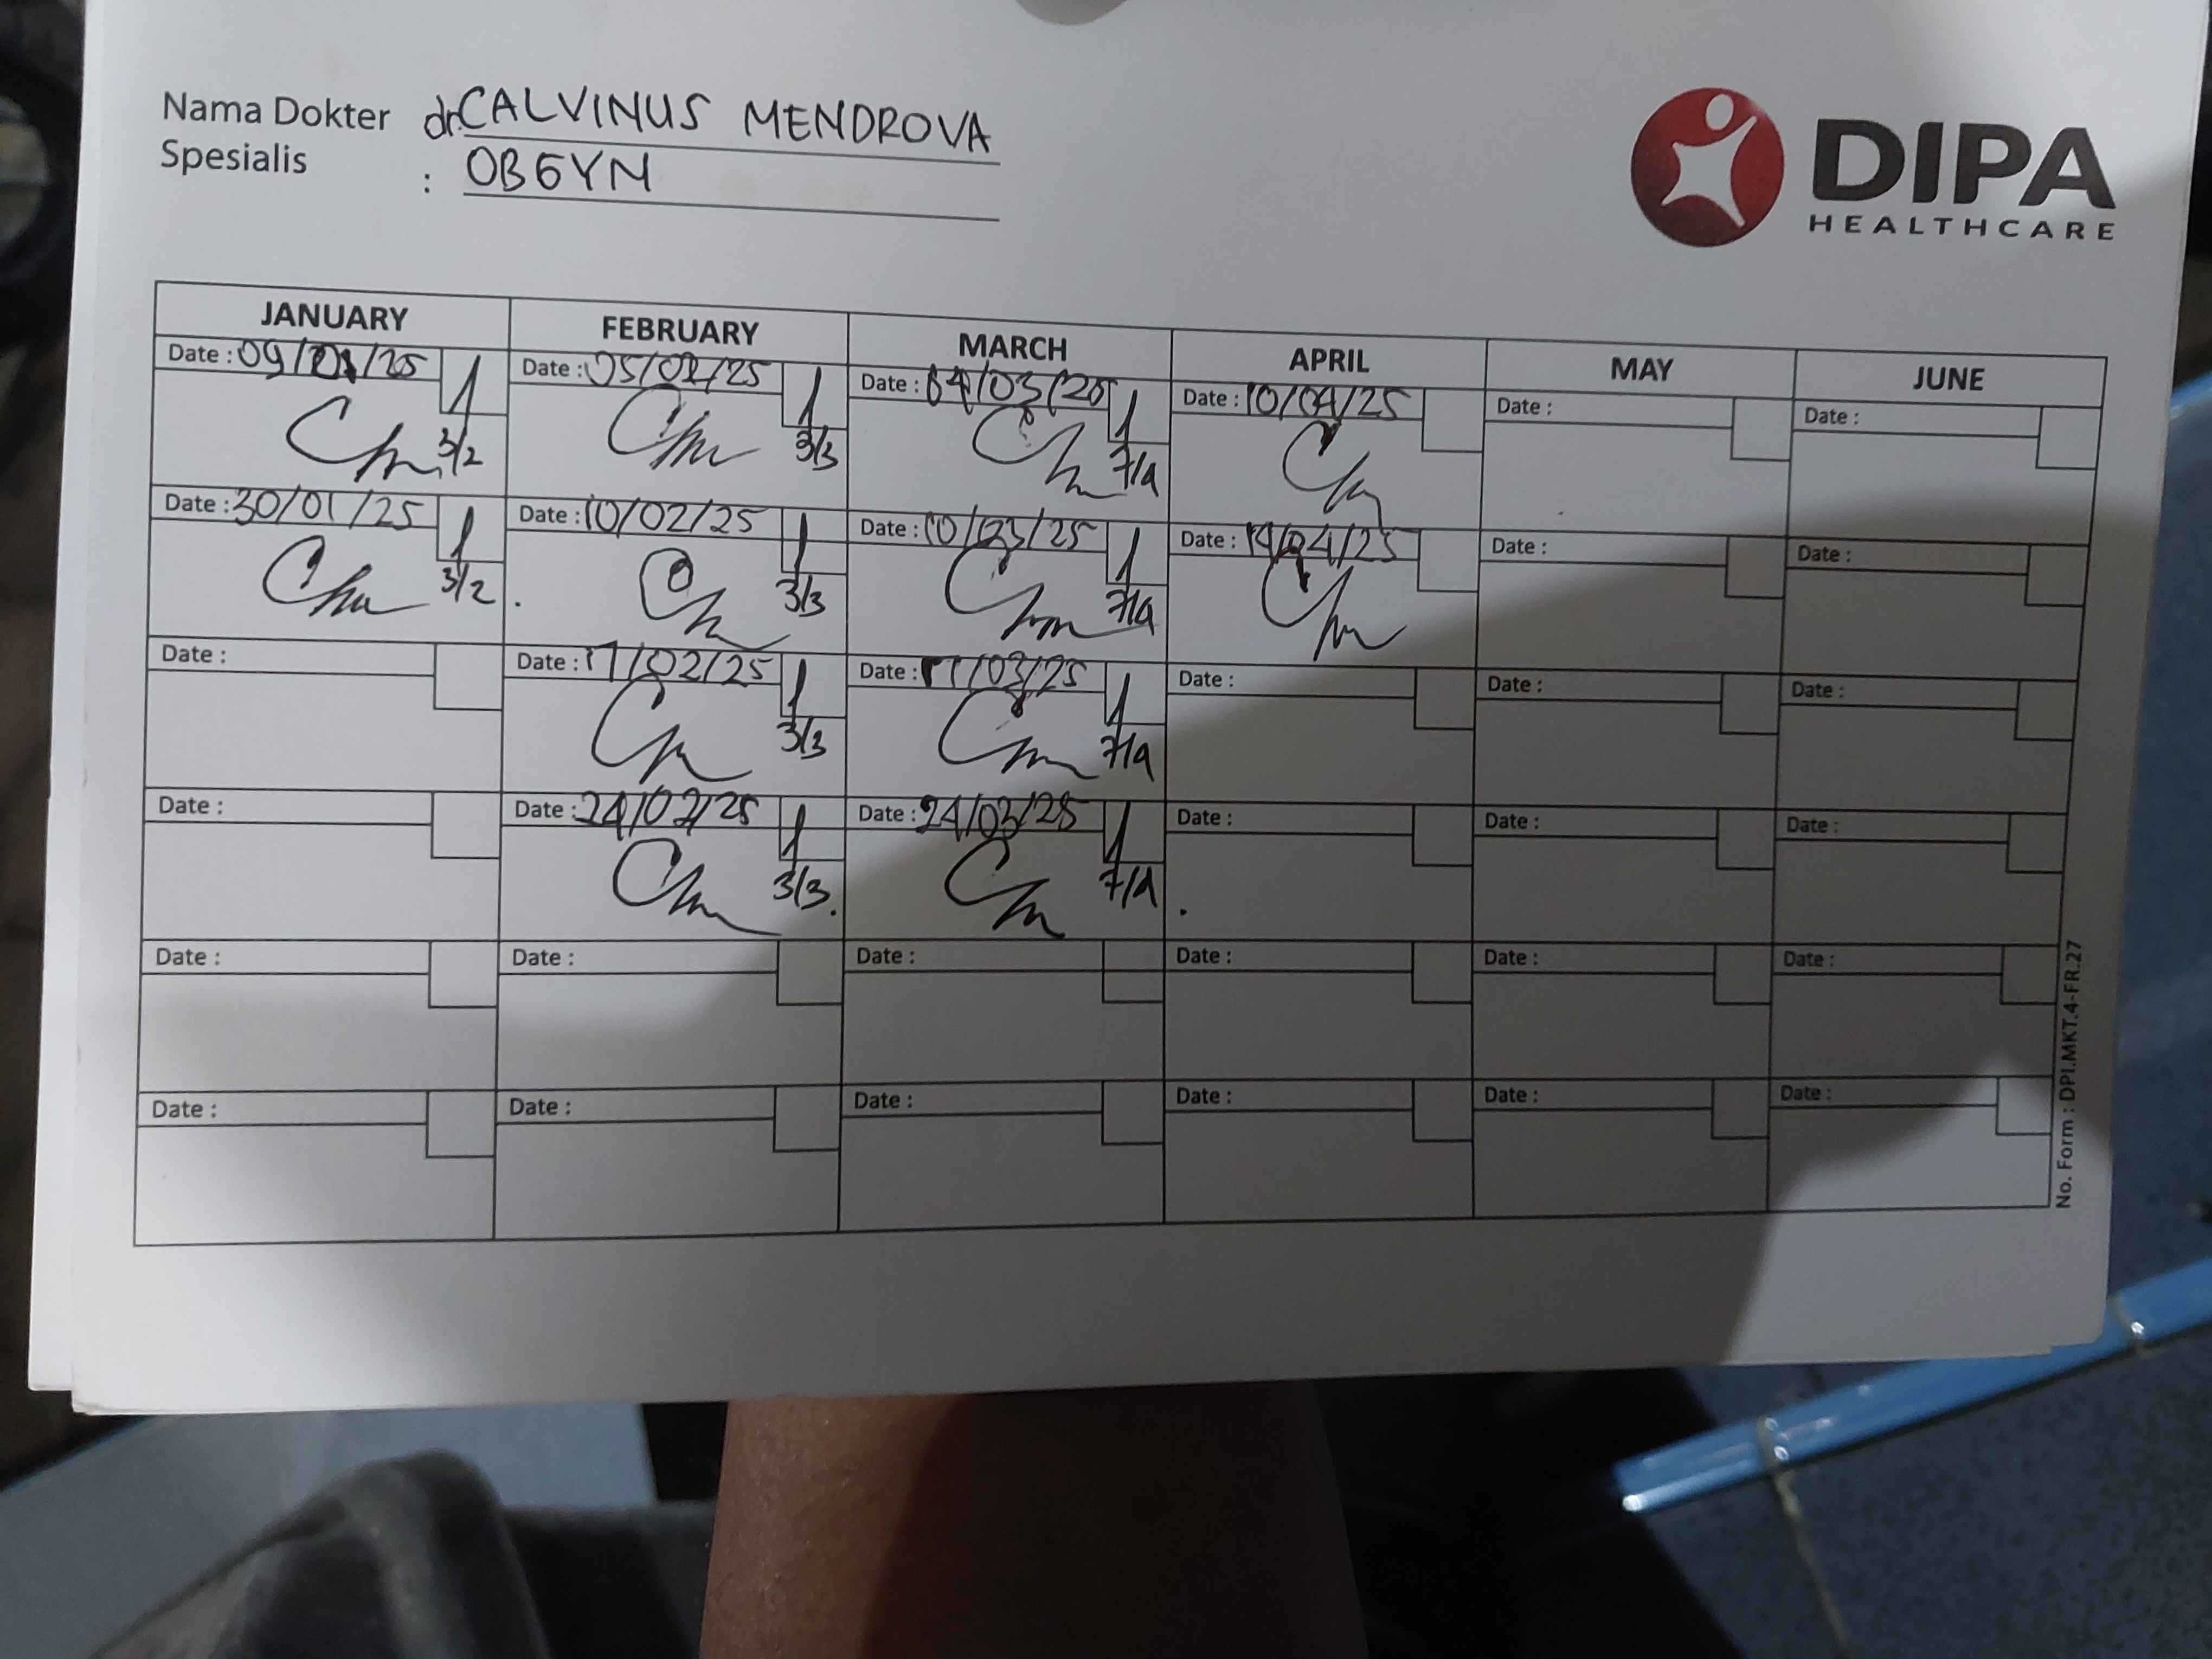 Nama Dokter dr. CALVINUS MENDROVA
Spesialis : OBGYN
DIPA
HEALTHCARE
JANUARY FEBRUARY MARCH APRIL MAY JUNE
Date : 09/01/25 Date : 05/02/25 Date : 04/03/25 Date : 10/04/25 Date : Date :
3/2 3/3 7/4
Date : 30/01/25 Date : 10/02/25 Date : 10/03/25 Date : 14/04/25 Date : Date :
3/2 3/3 7/4
Date : Date : 17/02/25 Date : 17/03/25 Date : Date : Date :
3/3 7/4
Date : Date : 24/02/25 Date : 24/03/25 Date : Date : Date :
3/3 7/4
Date : Date : Date : Date : Date : Date :
Date : Date : Date : Date : Date : Date :
No. Form : DPI.MKT.4-FR.27